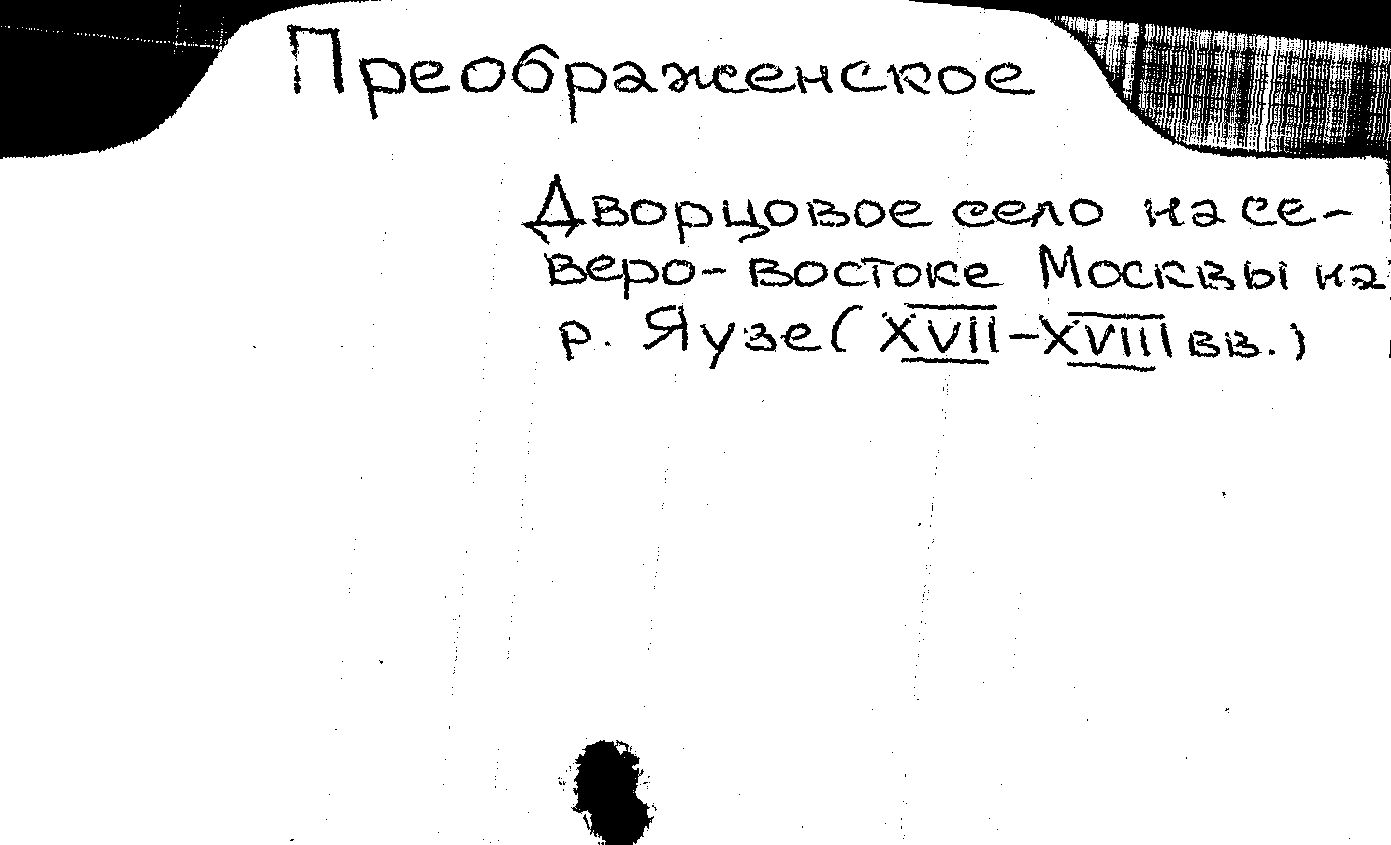 Преображенское
Дворцовое село на се-
веро-востоке Москвы на
р. Яузе (XVII-XVIII вв.)